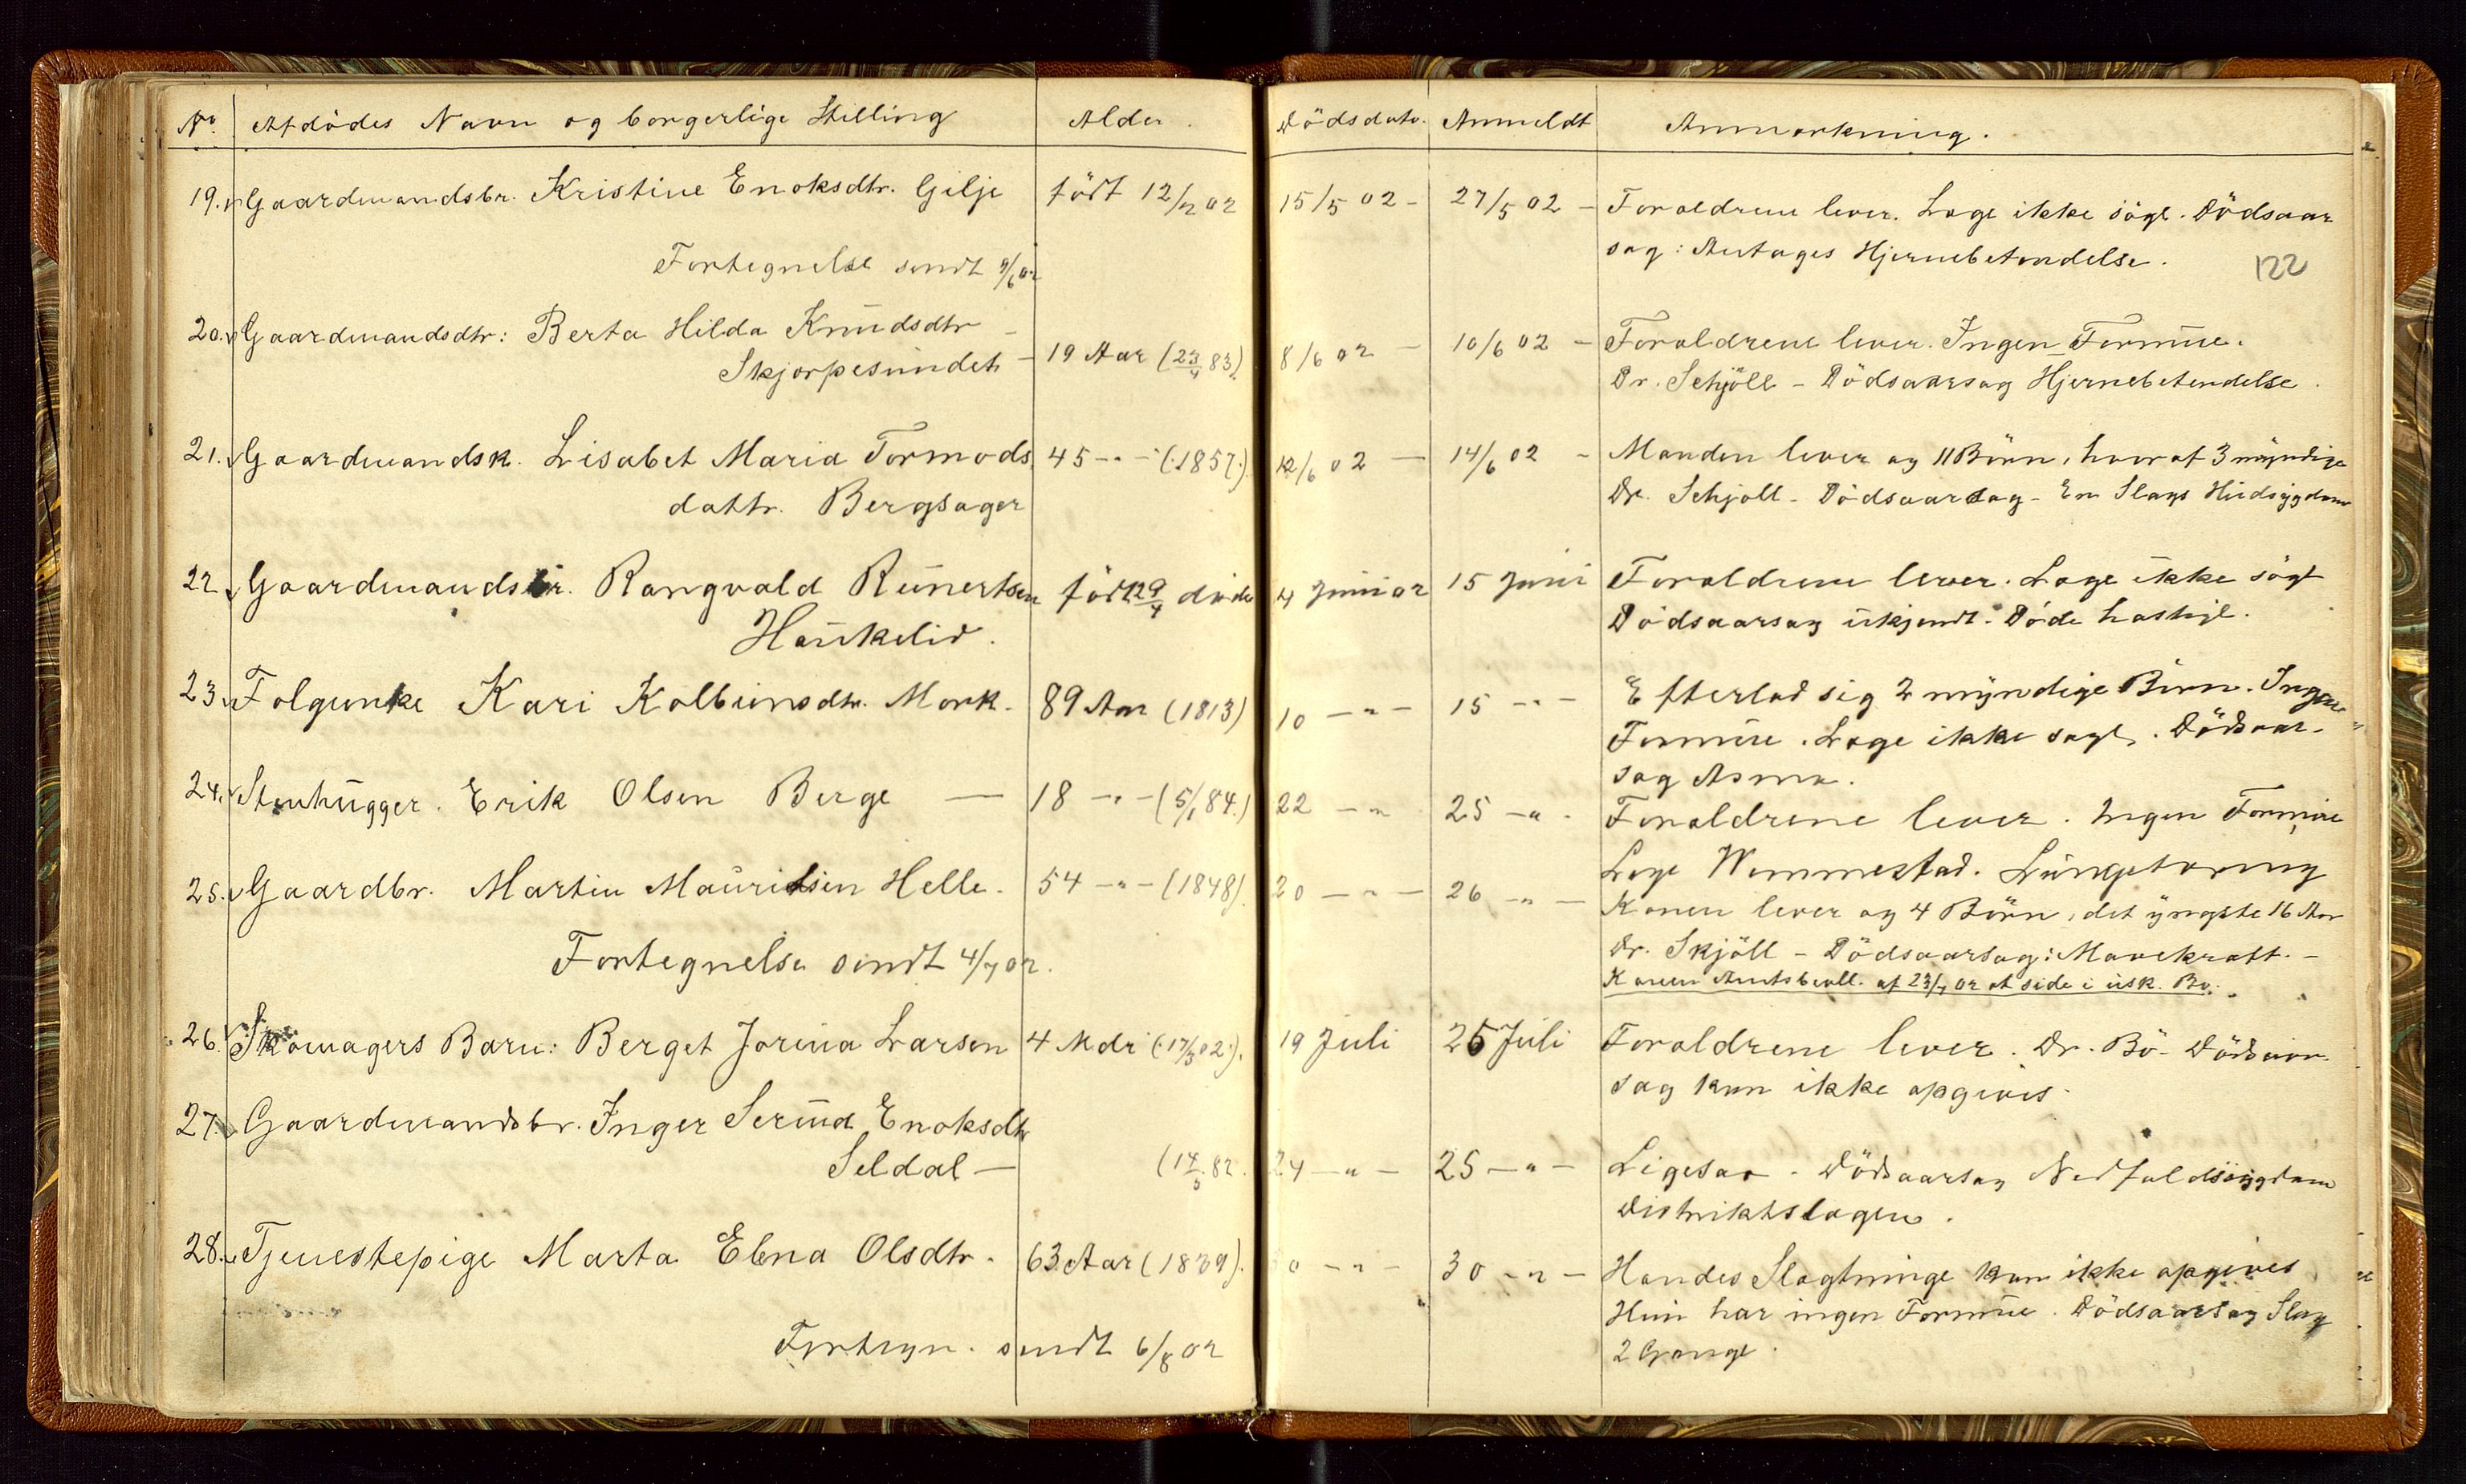 No. Afdødes Navn og borgerlige Stilling Alder. Dödsdato. Anmeldt Anmærkning.
19. Gaardmandsbr. Kristine Enoksdtr. Gilje født 12/2 02 15/5 02 - 27/5 02 - Forældrene lever. Læge ikke sögt. Dödsaar
sag: Antages Hjernebetændelse.
122
Fortegnelse sendt 9/6 02
20. Gaardmandsdtr: Berta Hilda Knudsdtr -
Skjørpesundet - 19 Aar (23/4 83). 8/6 02 - 10/6 02 - Forældrene lever. Ingen Formue.
Dr. Schjöll - Dödsaarsag Hjernebetendelse.
21. Gaardmandsk. Lisabet Maria Tormods 45 -"- (1857.) 12/6 02 - 14/6 02 - Manden lever og 11 Börn, hvoraf 3 myndige
dattr. Bergsager Dr. Schjøll - Dödsaarsag - En Slags Hudsygdom
22. Gaardmandsbr. Rangvald Runertsen født 29/4 døde 4 Juni 02 15 Juni Forældrene lever. Læge ikke sögt
Haukelid. Dödsaarsag ukjendt. Döde hastigt.
23. Folgenke Kari Kolbensdtr. Mork. 89 Aar (1813) 10 -"- 15 -"- Efterlod sig 2 myndige Börn. Ingen
Formue. Læge ikke søgt. Dödsaar-
sag Asma.
24. Stenhugger. Erik Olsen Berge - 18 -"- (5/1 84.) 22 -"- 25 -"- Forældrene lever. Ingen Formue
Læge Wemmestad. Lungetæring
25. Gaardbr. Martin Mauritsen Helle. 54 -"- (1848). 20 -"- 26 -"- Konen lever og 4 Börn, det yngste 16 Aar
Dr. Skjöll - Dödsaarsag: Mavekræft. -
Fortegnelse sendt 4/7 02. Konen Amtsbevll. af 23/7 02 at side i usk. Bo.
26. Skomagers Barn: Berget Jorina Larsen 4 Mdr (17/3 02.). 19 Juli 25 Juli Forældrene lever. Dr. Bö. Dödsaar
sag kan ikke opgives.
27. Gaardmandsbr. Inger Seruna Enoksdtr
Seldal - (14/5 82. 24 -"- 25 -"- Ligesaa. Dödsaarsag Nedfaldssygdom
Distriktslægen.
28. Tjenestepige Marta Elena Olsdtr. 63 Aar (1839). 30 -"- 30 -"- Hendes Slægtninge kan ikke opgives
Hun har ingen Formue. Dödsaarsag Slag
2 Gange.
Fortegn. sendt 6/8 02